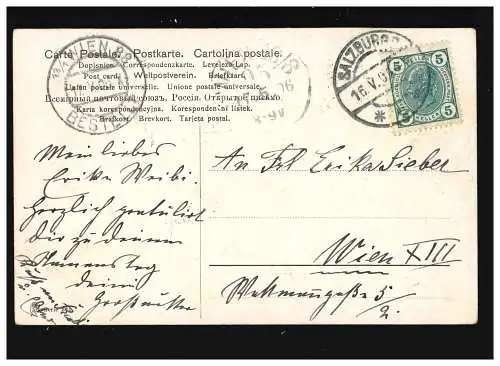 Carte Postale. Postkarte. Cartolina postale.
Dopisnica. Correspondenzkarte. Levelező-Lap.
Post card. Weltpostverein. Briefkort.
Union postale universelle. Unione postale-universale.
Всемирный почтовый союз. Россия. Открытое письмо.
Karta korespondencyjna. Korespondenční lístek.
Brefkort. Brevkort. Tarjeta postal.
WIEN
BESTELLT
SALZBURG
16.V.
5 5
5 HELLER 5
Mein liebes
Erika Weibi.
Herzlich gratulirt
dir zu deinem
Namenstag
deine
Großmutter
An Frl Erika Sieber
Wien XIII